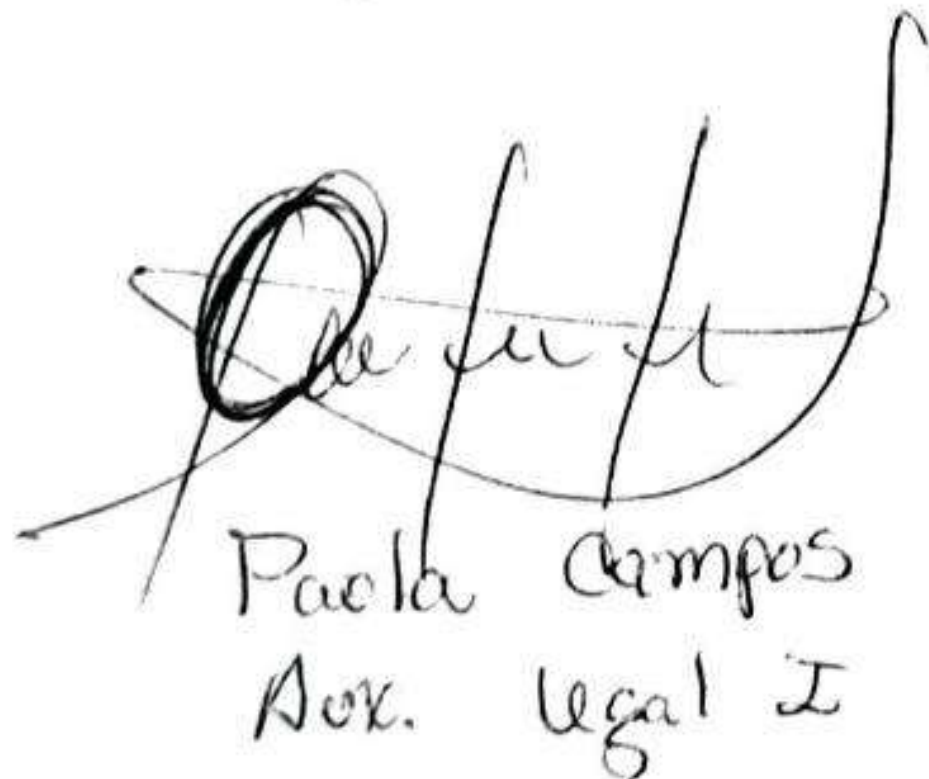 Paola Campos
Aux. Legal I